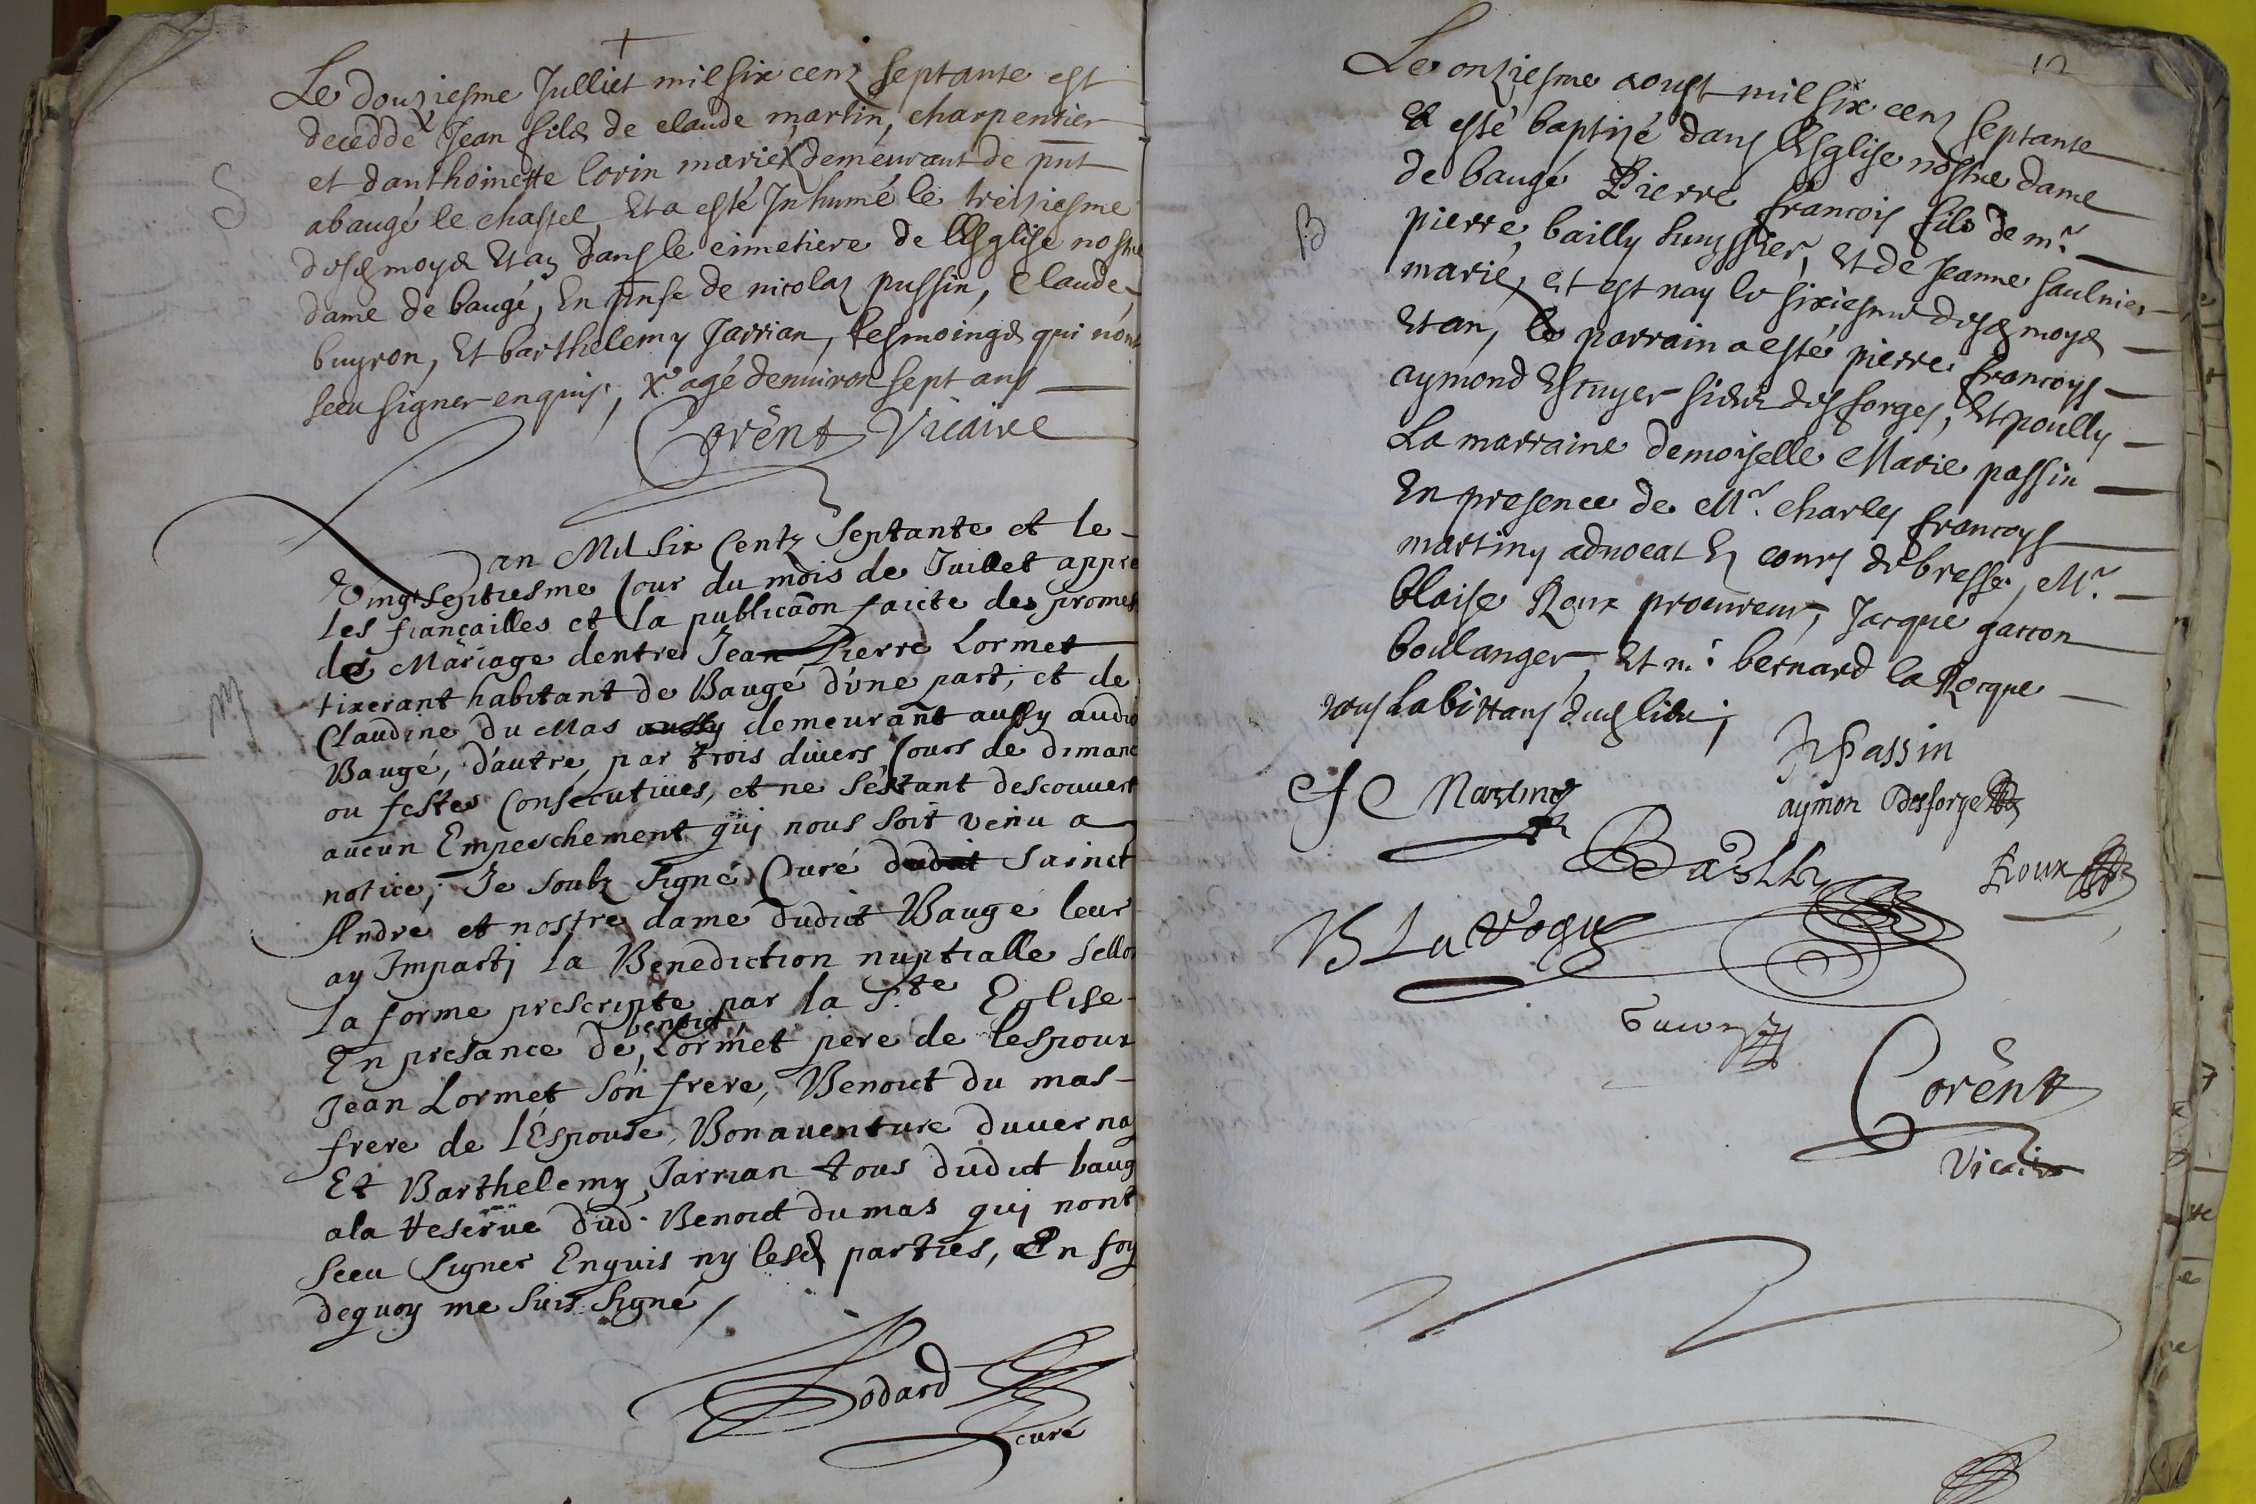 Le douziesme Julliet mil six cenz septante est
deceddé Jean filz de claude martin, charpentier
et danthoinette lorin mariez X demeurant de pnt
S
abaugé le chastel, Et a esté Inhumé le treiziesme
desd moys Et an dans le cimetiere de LEsglise nostre
dame de baugé, En pnse de nicolas pussin, Claude
buyron, Et barthelemy Jarrian, tesmoings qui nont
sceu signer enquis, X agé denuiron sept ans
Corent Vicaire
Lan Mil Six Centz Septante et le
Vingt septiesme Jour du mois de Juillet appre
les fiançailles et la publicaon faicte des promes
de Mariage dentre Jean Pierre Lormet
M
tixerant habitant de Baugé d'une part, et de
Claudine du Mas aussy demeurant aussy audic
Baugé, d'autre, par trois diuers Jours de dimanc
ou festes Consecutiues, et ne s'estant descouuert
aucun Empeschement qui nous soit venu a
notice; Je soubz signé Curé dudit Sainct
André et nostre dame dudict Baugé leur
ay Imparti la Benediction nuptialle sello
la forme prescripte par la S.te Eglise
benoict
En presance de, Lormet pere de lespoux
Jean Lormet son frere, Benoict du mas
frere de l'Espouse, Bonauenture duuernay
Et Barthelemy Jarrian tous dudict baug
ala reserue dud. Benoict du mas qui nont
sceu signer Enquis ny lesd parties, En foy
dequoy me suis signé
Godard
curé
12
Le onziesme aoust mil six cenz septante
a esté baptizé dans LEsglise nostre dame
de baugé Pierre francois fils de m.r
B
pierre bailly huyssier, Et de Jeanne saulnier
marié, et est nay le sixiesme desd moys
Et an, le parrain a esté pierre francoys
aymond Escuyer sieur des forges, Et poully
La marraine demoiselle Marie passin
En presence de M.r charles francoys
martiny aduocat Ez cours de bresse, M.r
blaise Roux procureur, Jacque garron
boulanger, Et m.r bernard la Rocque
tous habittans dud lieu;
Passin
f C Martiny
aymon Desforge
Bailly
Roux
B La Roque
Corent
Vicaire